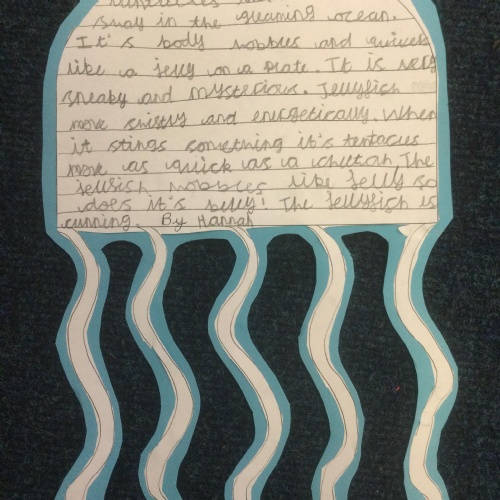 sway in the gleaming ocean.
It's body wobbles and quivers
like a jelly on a plate. It is very
sneaky and mysterious. Jellyfish
move swiftly and energetically. When
it stings something it's tentacles
move as quick as a cheetah. The
jellfish wobbles like jelly so
does it's belly! The jellyfish is
cunning. By Hannah